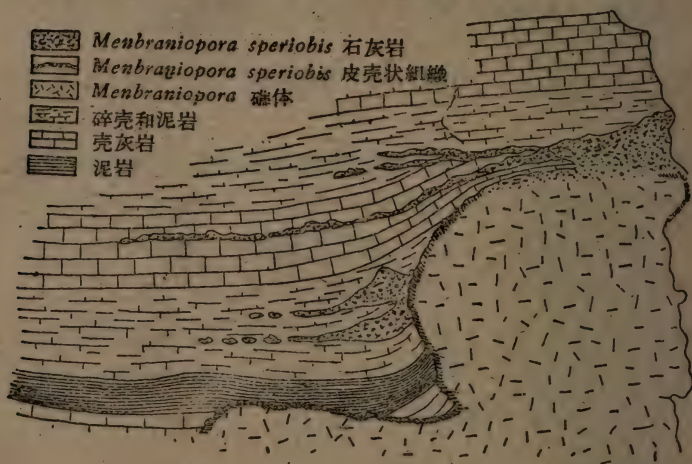 Menbraniopora speriobis 石灰岩
Menbraniopora speriobis 皮壳状组织
Menbraniopora 礁体
碎壳和泥岩
壳灰岩
泥岩